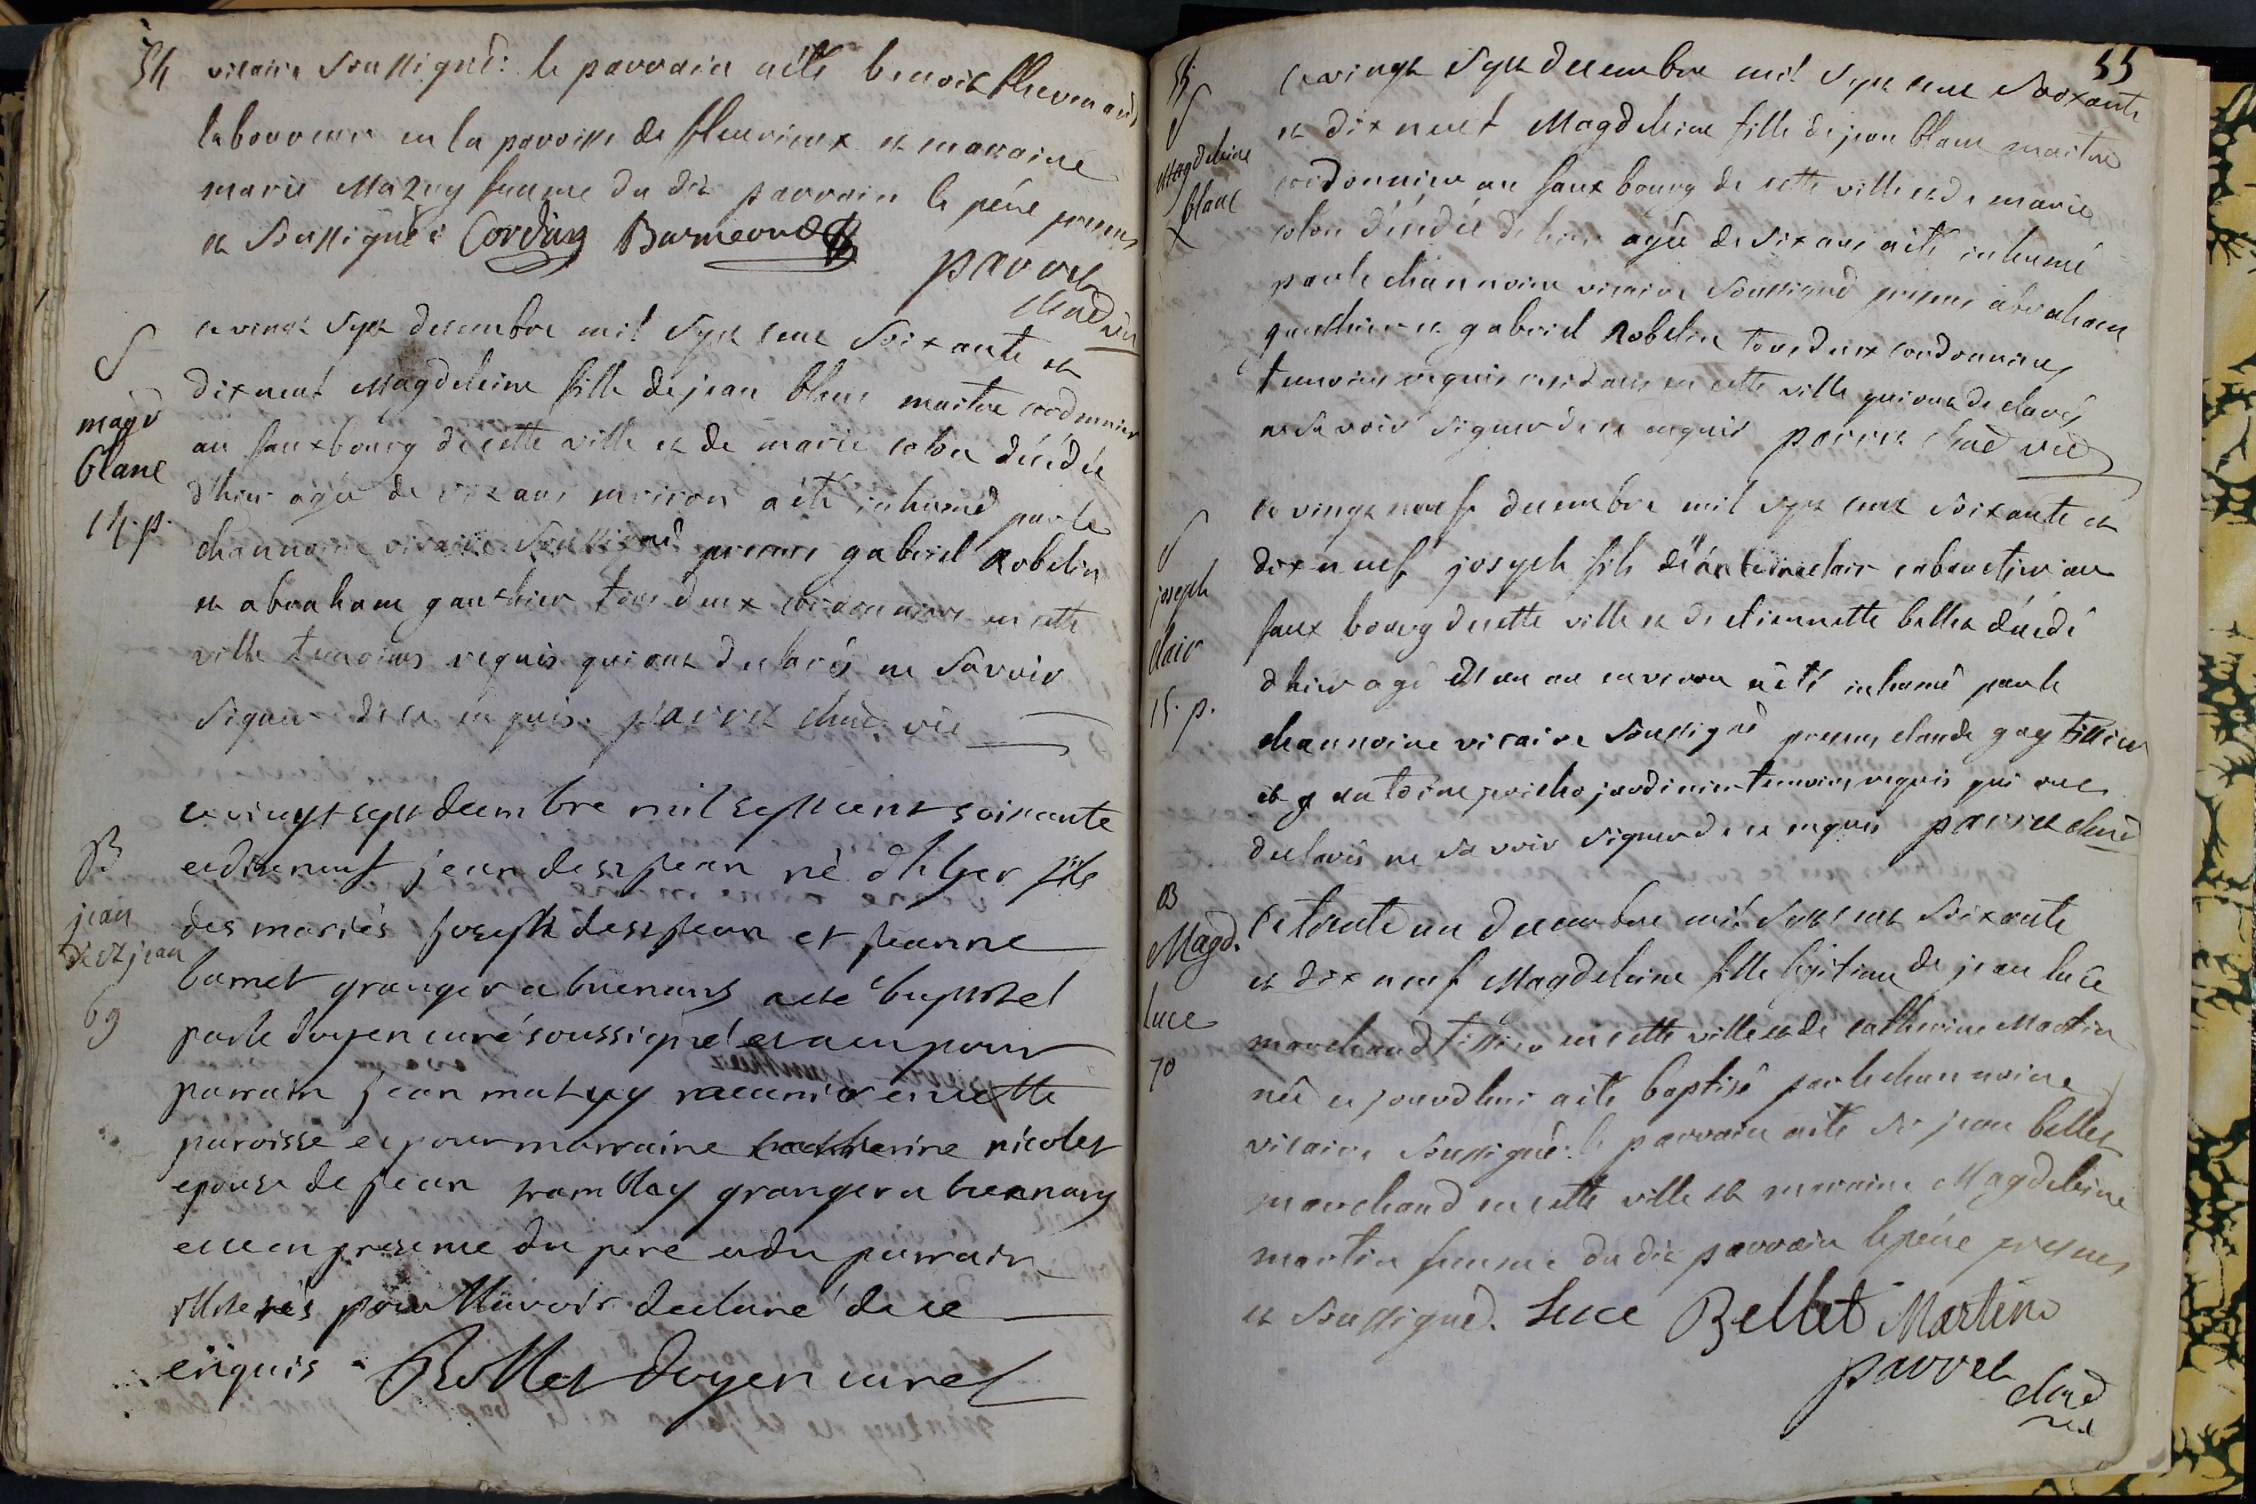 54
vicaire soussigné: le parrain a été benoit thevenard
laboureur en la paroisse de fleurieux et maraine
marie Mazuy femme du dit parrain le pére present
et soussigné: Cordier Barmeond
parret
chnê vic
S
magd
blanc
14. p.
ce vingt sept decembre mil sept cent soixante et
dix neuf Magdeleine fille de jean blanc maitre cordonnier
au fauxbourg de cette ville et de marie colon décédée
d'hier agée de six ans environ a été inhumé par le
channoine vicaire soussigné presens gabriel Robelin
et abraham gauthier tous deux cordonniers en cette
ville temoins requis qui ont declarés ne savoir
signer de ce enquis. parret chnê. vic
B
jean
dest jean
69
ce vingt sept decembre mil sept cent soixante
et dix neuf jean dest jean né d'hyer fils
des mariés joseph dest jean et jeanne
barnet granger a buenans a été baptisé
par le doyen curé soussigné et a eu pour
parrain jean mathy en cette
paroisse et pour marraine catherine nicolet
epouse de jean tramblay granger a buenans
et ce en presence du pere et du parrain
illiterés pour l'avoir declaré de ce
enquis Rollet doyen curé
55
55
S
Magdeleine
blanc
ce vingt sept decembre mil sept cent soixante
et dix neuf Magdeleine fille de jean blanc maitre
cordonnier au faux bourg de cette ville et de marie
colon décédée d'hier agée de six ans a été inhumé
par le channoine vicaire soussigné presens abraham
gauthier et gabriel Robelin tous deux cordonniers
temoins requis residans en cette ville qui ont declarés
ne savoir signer de ce enquis parret chnê vic
S
joseph
clair
15. p.
ce vingt neuf decembre mil sept cent soixante et
dix neuf joseph fils d'antoine clair cabaretier au
faux bourg de cette ville et de etiennette bellet décédé
d'hier agé d'un an environ a été inhumé par le
channoine vicaire soussigné presens claude gay tissier
et antoine jardinier temoins requis qui ont
declarés ne savoir signer de ce enquis parret chnê
B
Magd.
luce
70
Ce trente un decembre mil sept cent soixante
et dix neuf Magdeleine fille legitime de jean luce
marchand tissier en cette ville et de catherine Martin
née ce jourd'hui a été baptisé par le channoine
vicaire soussigné: le parrain a été sr jean bellet
marchand en cette ville et maraine Magdeleine
martin femme du dit parrain le pére present
et soussigné. Luce Bellet Martin
parret chnê
vic